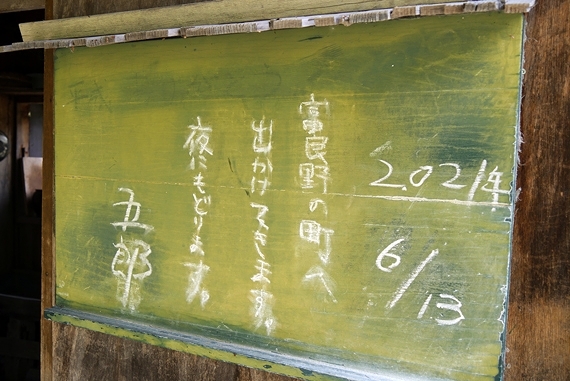 2021年
6/13
富良野の町へ
出かけてきます
夜にもどります。
五郎